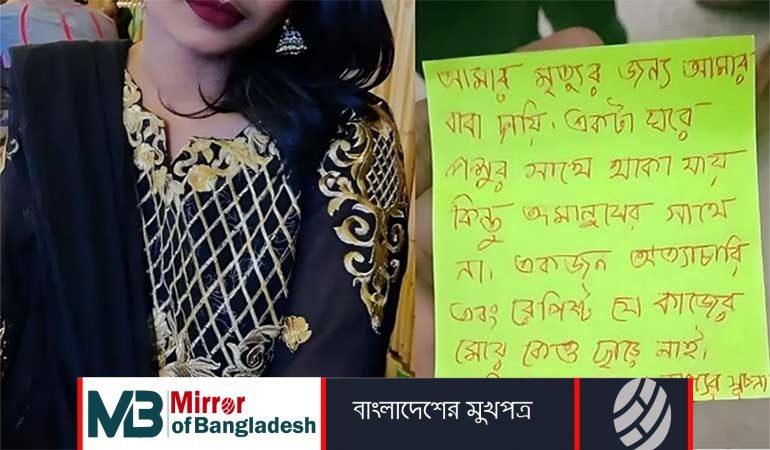 আমার মৃত্যুর জন্য আমার
বাবা দায়ি. একটা ঘরে
পশুর সাথে থাকা যায়
কিন্তু অমানুষের সাথে
না. একজন অত্যাচারি
এবং রেপিস্ট যে কাজের
মেয়ে কেও ছারে নাই.
সূচনা
MB Mirror
of Bangladesh
বাংলাদেশের মুখপত্র